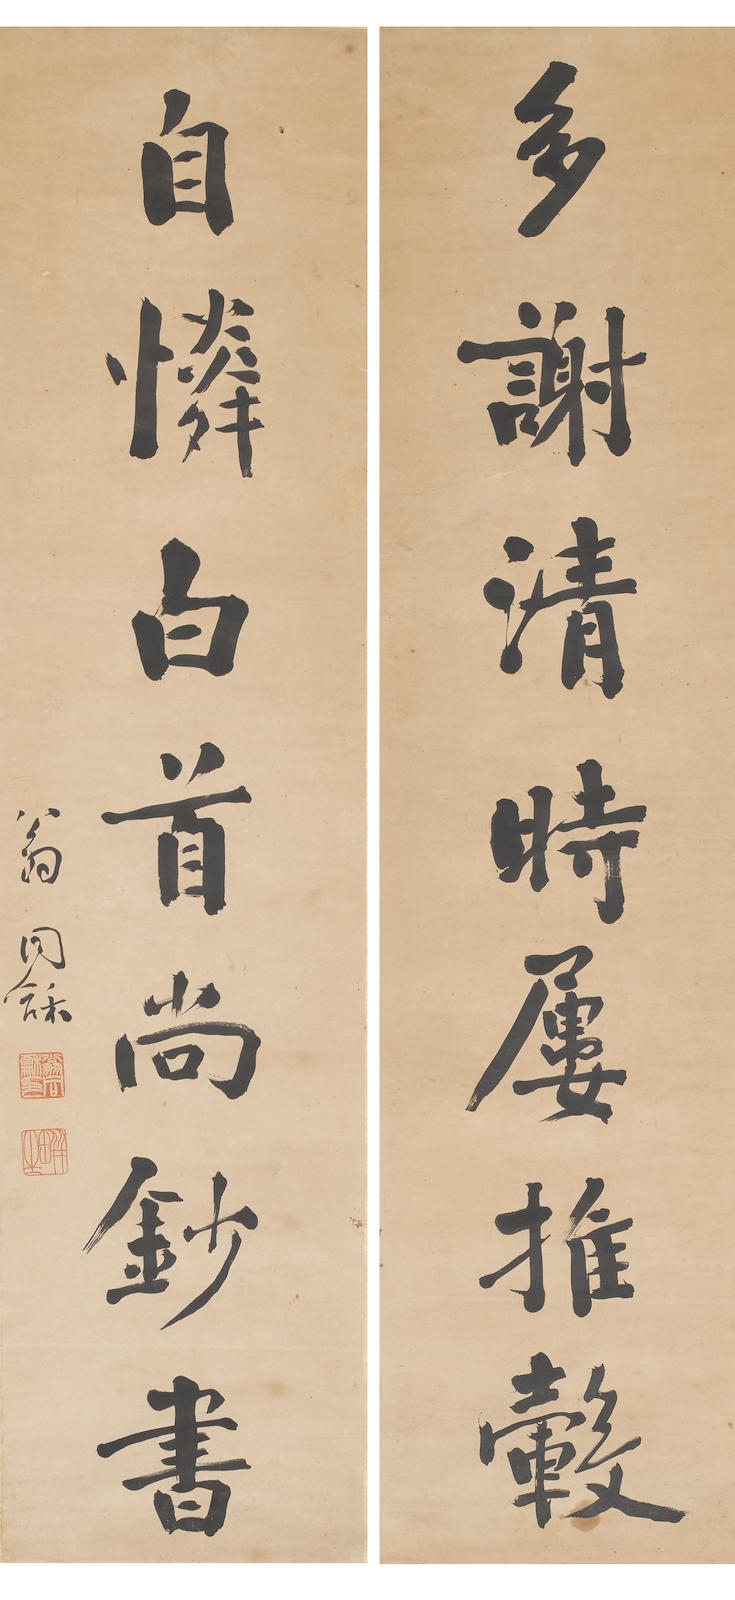 多謝清時屢推轂
自憐白首尚鈔書
翁同龢